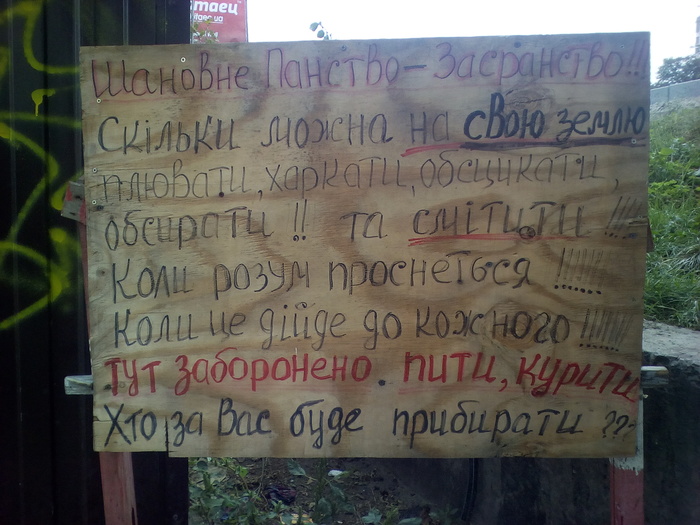 таец
Шановне Панство – Засранство!!
Скільки можна на свою землю
плювати, харкати, обсцикати,
обсирати !! та смітити !!!!
Коли розум проснеться !!!!!!
Коли це дійде до кожного !!!!!!
тут заборонено. пити, курити
Хто за Вас буде прибирати ???